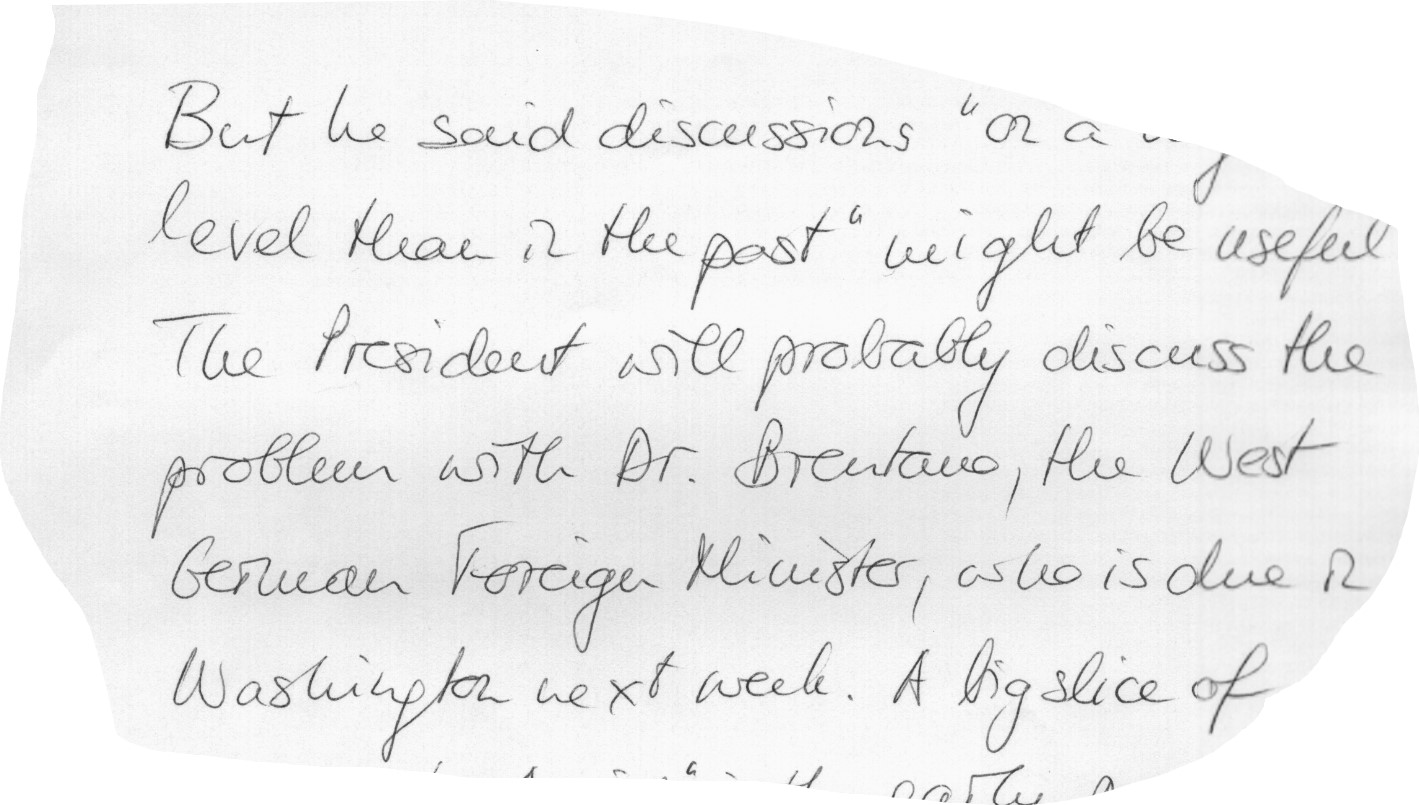 But he said discussions "on a
level than in the past" might be useful
The President will probably discuss the
problem with Dr. Brentano, the West
German Foreign Minister, who is due in
Washington next week. A big slice of